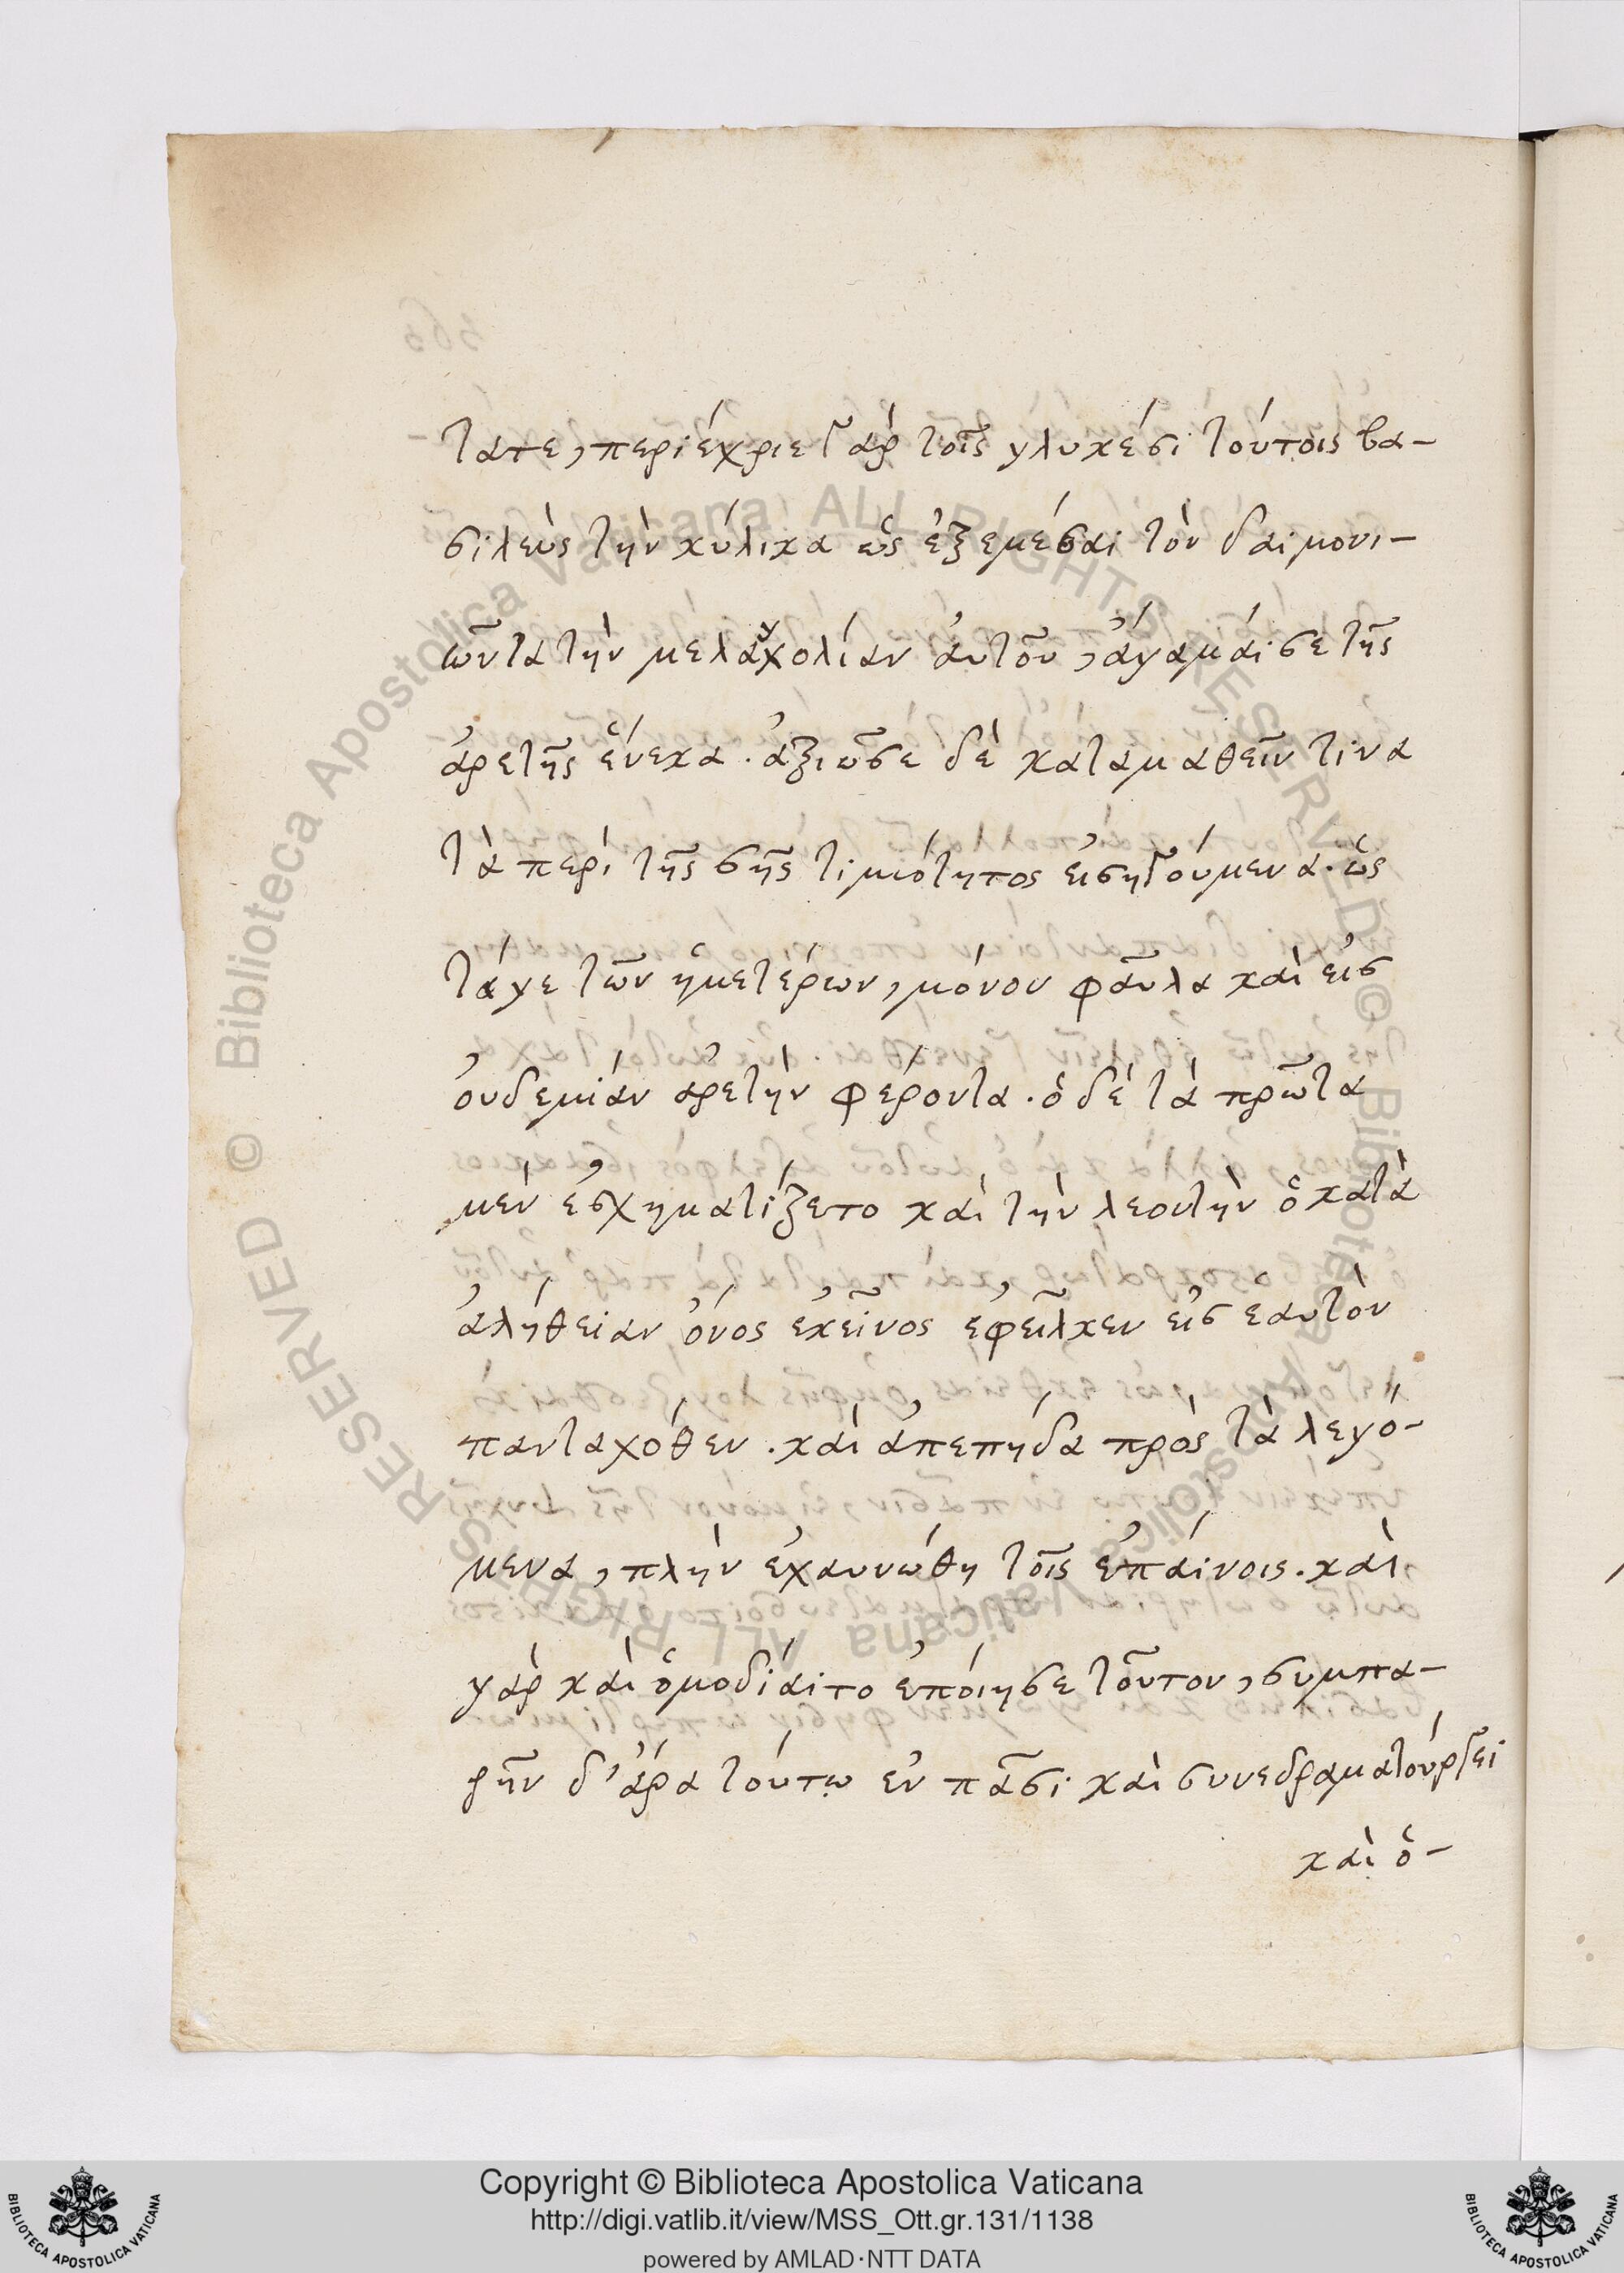 τατε, περιέχριε γὰρ τοῖς γλυκέσι τούτοις βα-
σιλεὺς τὴν κύλικα ὡς ἐξεμέσαι τὸν δαιμονι-
ῶντα τὴν μελαγχολίαν αὐτοῦ, ἄγαμαί σε τῆς
ἀρετῆς ἕνεκα. ἀξιῶσε δὲ καταμαθεῖν τινα
τὰ περὶ τῆς σῆς τιμιότητος εἰσηγούμενα. ὡς
τάγε τῶν ἡμετέρων, μόνον φαῦλα καὶ εἰς
οὐδεμίαν ἀρετὴν φέροντα. ὁ δὲ τὰ πρῶτα
μὲν ἐσχηματίζετο καὶ τὴν λεοντὴν ὁ κατὰ
ἀλήθειαν ὄνος ἐκεῖνος ἐφεῖλκεν εἰς ἑαυτὸν
πανταχόθεν. καὶ ἀπεπήδα πρὸς τὰ λεγό-
μενα, πλὴν ἐχαυνώθη τοῖς ἐπαίνοις. καὶ
γὰρ καὶ ὁμοδίαιτο ἐποίησε τοῦτον, συμπα-
ρῆν δ' ἄρα τούτῳ ἐν πᾶσι καὶ συνεδραματούργει
καὶ ὁ-
Copyright © Biblioteca Apostolica Vaticana
http://digi.vatlib.it/view/MSS_Ott.gr.131/1138
powered by AMLAD·NTT DATA
BIBLIOTECA APOSTOLICA VATICANA
BIBLIOTECA APOSTOLICA VATICANA
© Biblioteca Apostolica Vaticana ALL RIGHTS RESERVED © Biblioteca Apostolica Vaticana ALL RIGHTS RESERVED